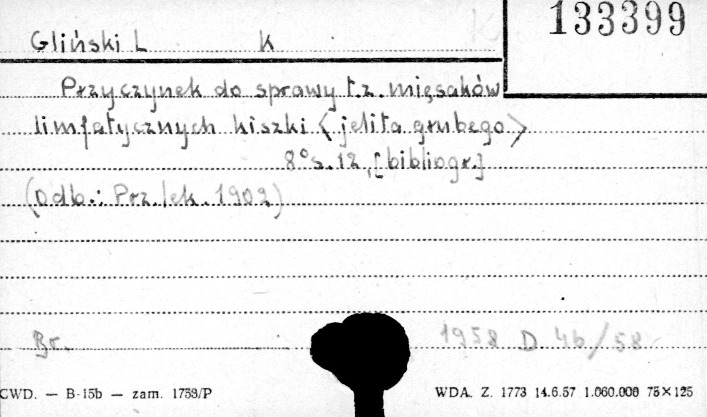 133399
Gliński L K
Przyczynek do sprawy t.z. mięsaków
limfatycznych kiszki <jelita grubego>
8° s. 12, [bibliogr.]
(Odb.: Prz. lek. 1902)
Br. 1958 D 46/58
CWD. — B-15b — zam. 1758/P WDA. Z. 1773 14.6.57 1.060.000 75×125